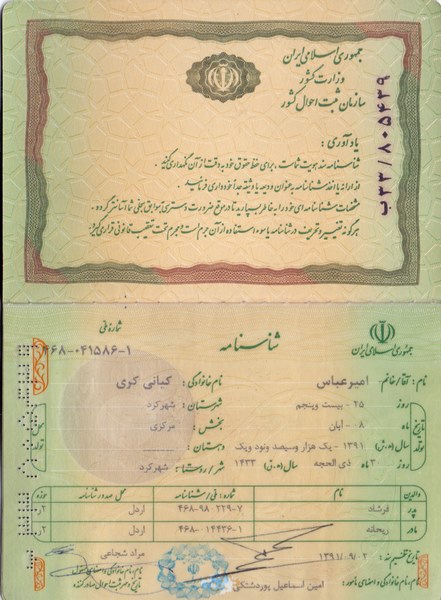 جمهوری اسلامی ایران
وزارت کشور
سازمان ثبت احوال کشور
ب۳۳/۸۰۵۴۳۹
یادآوری :
شناسنامه سند هویت شماست، برای حفظ حقوق خود به دقت از آن نگهداری کنید.
از ارائه یا اخذ شناسنامه به عنوان ودیعه یا وثیقه جداً خودداری فرمائید.
مشخصات شناسنامه ای خود را به خاطر بسپارید تا در موقع ضرورت دسترسی به سوابق سجلی شما آسانتر گردد.
هرگونه تغییر و تحریف در شناسنامه یا سوء استفاده از آن جرم است و مجرم تحت تعقیب قانونی قرار می گیرد.
جمهوری اسلامی ایران
شناسنامه
شماره ملی
۴۶۸-۰۴۱۵۸۶-۱
نام : آقا/خانم امیرعباس نام خانوادگی : کیانی کری
تاریخ تولد
روز ۲۵ - بیست وپنجم شهرستان : شهرکرد
ماه ۰۸ - آبان بخش : مرکزی
سال (ه.ش) ۱۳۹۱ - یک هزار وسیصد ونود ویک دهستان :
روز ۳۰ ماه ذی الحجه سال (ه.ق) ۱۴۳۳ شهر / روستا : شهرکرد
محل تولد
والدین نام شماره : ملی / شناسنامه محل صدور شناسنامه حوزه
پدر فرشاد ۴۶۸-۹۸۰۲۲۹-۷ اردل ۲
مادر ریحانه ۴۶۸-۰۱۴۴۳۶-۱ اردل ۲
تاریخ تنظیم سند : ۱۳۹۱/۰۹/۰۲
مراد شجاعی
نام، نام خانوادگی و امضای مأمور : امین اسماعیل پوردشتکی
نام، نام خانوادگی و امضای
تاریخ و مهر ثبت احوال صادرکننده